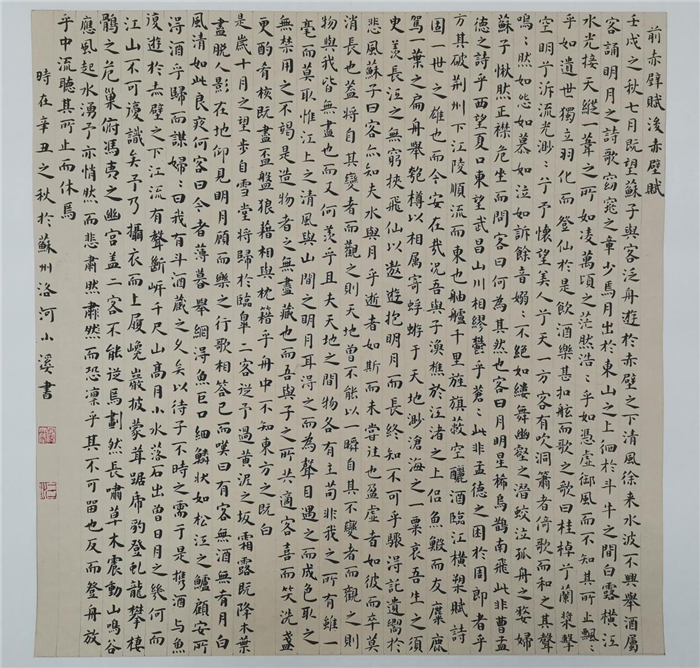 前赤壁賦後赤壁賦
壬戌之秋七月既望蘇子與客泛舟遊於赤壁之下清風徐來水波不興舉酒屬
客誦明月之詩歌窈窕之章少焉月出於東山之上徊於斗牛之間白露橫江
水光接天縱一葦之所如凌萬頃之茫然浩〻乎如憑虛御風而不知其所止飄〻
乎如遺世獨立羽化而登仙於是飲酒樂甚扣舷而歌之歌曰桂棹兮蘭槳擊
空明兮泝流光渺〻兮予懷望美人兮天一方客有吹洞簫者倚歌而和之其聲
嗚〻然如怨如慕如泣如訴餘音嫋〻不絕如縷舞幽壑之潛蛟泣孤舟之嫠婦
蘇子愀然正襟危坐而問客曰何為其然也客曰月明星稀烏鵲南飛此非曹孟
德之詩乎西望夏口東望武昌山川相繆鬱乎蒼〻此非孟德之困於周郎者乎
方其破荊州下江陵順流而東也舳艫千里旌旗蔽空釃酒臨江橫槊賦詩
固一世之雄也而今安在哉況吾與子漁樵於江渚之上侶魚鰕而友麋鹿
駕葉之扁舟舉匏樽以相屬寄蜉蝣于天地渺滄海之一粟哀吾生之須
臾羨長江之無窮挾飛仙以遨遊抱明月而長終知不可乎驟得託遺響於
悲風蘇子曰客亦知夫水與月乎逝者如斯而未嘗往也盈虛者如彼而卒莫
消長也蓋將自其變者而觀之則天地曾不能以一瞬自其不變者而觀之則
物與我皆無盡也而又何羨乎且夫天地之間物各有主苟非我之所有雖一
毫而莫取惟江上之清風與山間之明月耳得之而為聲目遇之而成色取之
無禁用之不竭是造物者之無盡藏也而吾與子之所共適客喜而笑洗盞
更酌肴核既盡盃盤狼籍相與枕籍乎舟中不知東方之既白
是歲十月之望步自雪堂將歸於臨皋二客從予過黃泥之坂霜露既降木葉
盡脫人影在地仰見明月顧而樂之行歌相答已而嘆曰有客無酒無肴月白
風清如此良夜何客曰今者薄暮舉網得魚巨口細鱗狀如松江之鱸顧安所
得酒乎歸而謀婦〻曰我有斗酒藏之久矣以待子不時之需于是攜酒與魚
復遊於赤壁之下江流有聲斷岸千尺山高月小水落石出曾日月之幾何而
江山不可復識矣予乃攝衣而上履巉巖披蒙茸踞虎豹登虬龍攀棲
鶻之危巢俯馮夷之幽宮蓋二客不能從焉劃然長嘯草木震動山鳴谷
應風起水湧予亦悄然而悲肅然而恐凜乎其不可留也反而登舟放
乎中流聽其所止而休焉
時在辛丑之秋於蘇州洛河小溪書